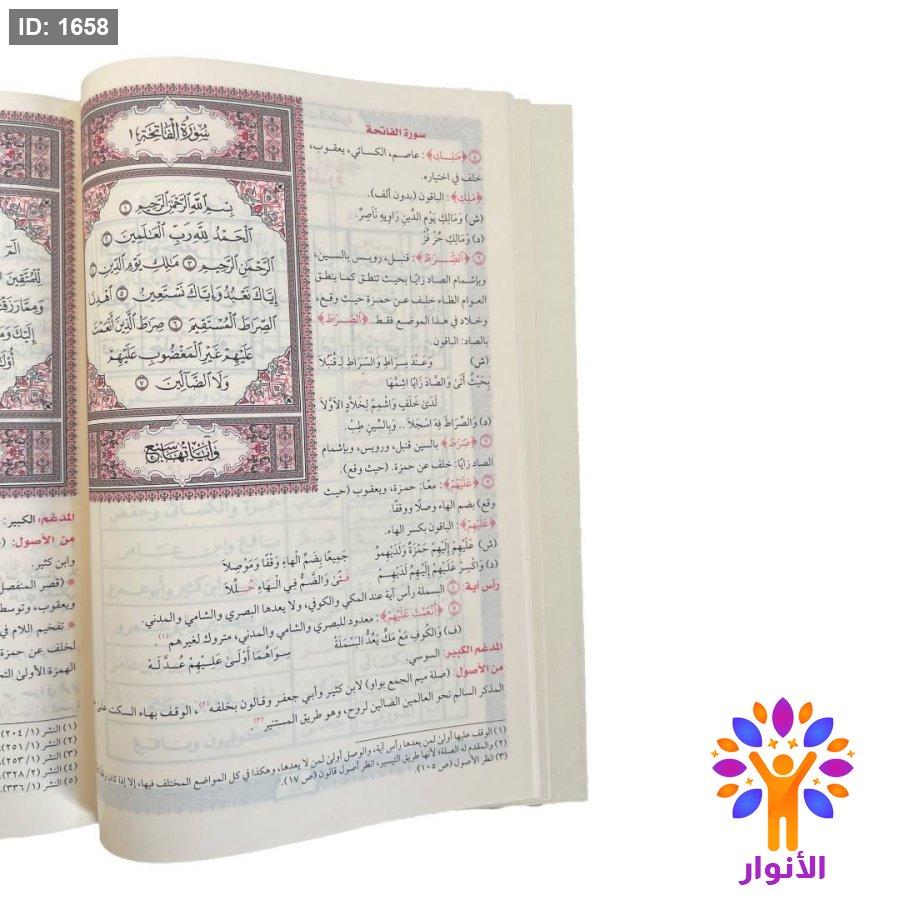 ID: 1658
سورة الفاتحة
سُورَةُ الْفَاتِحَةِ ١
بِسْمِ اللَّهِ الرَّحْمَٰنِ الرَّحِيمِ ١
الْحَمْدُ لِلَّهِ رَبِّ الْعَالَمِينَ ٢
الرَّحْمَٰنِ الرَّحِيمِ ٣ مَالِكِ يَوْمِ الدِّينِ ٤
إِيَّاكَ نَعْبُدُ وَإِيَّاكَ نَسْتَعِينُ ٥ اهْدِنَا
الصِّرَاطَ الْمُسْتَقِيمَ ٦ صِرَاطَ الَّذِينَ أَنْعَمْتَ
عَلَيْهِمْ غَيْرِ الْمَغْضُوبِ عَلَيْهِمْ
وَلَا الضَّالِّينَ ٧
وَآيَاتُهَا سَبْعٌ
٤ ﴿مَٰلِكِ﴾: عاصم، الكسائي، يعقوب،
خلف في اختياره.
﴿مَلِكِ﴾: الباقون (بدون ألف).
(ش) وَمَالِكِ يَوْمِ الدِّينِ رَاوِيهِ نَاصِرٌ.
(د) وَمَالِكِ حُزْ فُزْ
٦ ﴿الصِّرَٰطَ﴾: قنبل، رويس بالسين،
وبإشمام الصاد زايًا بحيث تنطق كما ينطق
العوام الظاء خلف عن حمزة حيث وقع،
وخلاد في هذا الموضع فقط. ﴿الصِّرَٰطَ﴾
بالصاد: الباقون.
(ش) وَعِنْدَ سِرَاطِ وَالسِّرَاطِ لِ قُنْبُلَا
بِحَيْثُ أَتَىٰ وَالصَّادُ زَايًا اشِمَّهَا
لَدَىٰ خَلَفٍ وَاشْمِمْ لِخَلَّادِ الَاوَّلَا
(د) وَالصِّرَاطَ فِهْ اسْجَلَا .. وَبِالسِّينِ طِبْ.
٧ ﴿صِرَٰطَ﴾ بالسين قنبل، ورويس، وبإشمام
الصاد زايًا: خلف عن حمزة. (حيث وقع)
٧ ﴿عَلَيْهِمْ﴾: معًا: حمزة، ويعقوب (حيث
وقع) بضم الهاء وصلًا ووقفًا.
﴿عَلَيْهِمْ﴾: الباقون بكسر الهاء.
(ش) عَلَيْهِمْ إِلَيْهِمْ حَمْزَةٌ وَلَدَيْهِمُو جَمِيعًا بِضَمِّ الْهَاءِ وَقْفًا وَمَوْصِلَا
(د) وَاكْسِرْ عَلَيْهِمْ إِلَيْهِمُ لَدَيْهِمُ فَتًى وَالضَّمُّ فِي الْهَاءِ حُلِّلَا
رأس آية: ١ البسملة رأس آية عند المكي والكوفي، ولا يعدها البصري والشامي والمدني.
٧ ﴿أَنْعَمْتَ عَلَيْهِمْ﴾: معدود للبصري والشامي والمدني، متروك لغيرهم(١).
(ف) وَالْكُوفِ مَعْ مَكٍّ يَعُدُّ الْبَسْمَلَةْ سِوَاهُمَا أَوْلَىٰ عَلَيْهِمْ عُدَّ لَهْ
المدغم الكبير: السوسي.
من الأصول: (صلة ميم الجمع بواو) لابن كثير وأبي جعفر وقالون بخلفه(٢)، الوقف بهاء السكت على
المذكر السالم نحو العالمين الضالين لروح، وهو طريق المستنير(٣).
(١) الوقف عليها أولى لمن يعدها رأس آية، والوصل أولى لمن لا يعدها، وهكذا في كل المواضع المختلف فيها، إلا إذا كان
(٢) والمقدم له الصلة؛ لأنها طريق التيسير، انظر أصول قالون (ص ١٧).
(٣) انظر الأصول (ص ١٠٥).
الٓمٓ
لِّلْمُتَّقِينَ
وَمِمَّا رَزَقْ
إِلَيْكَ وَمَ
أُوْلَٰ
المدغم: الكبير:
من الأصول:
وابن كثير.
* (قصر المنفصل
ويعقوب، وتوسط
* تفخيم اللام في
لخلف عن حمزة
الهمزة الأولى
(١) النشر (١/ ٢٠٤)
(٢) النشر (١/ ٢٥١)
(٣) النشر (١/ ٢٥٣)
(٤) النشر (٢/ ٣٢٨)
(٥) النشر (١/ ٣٣٦)
الأنوار